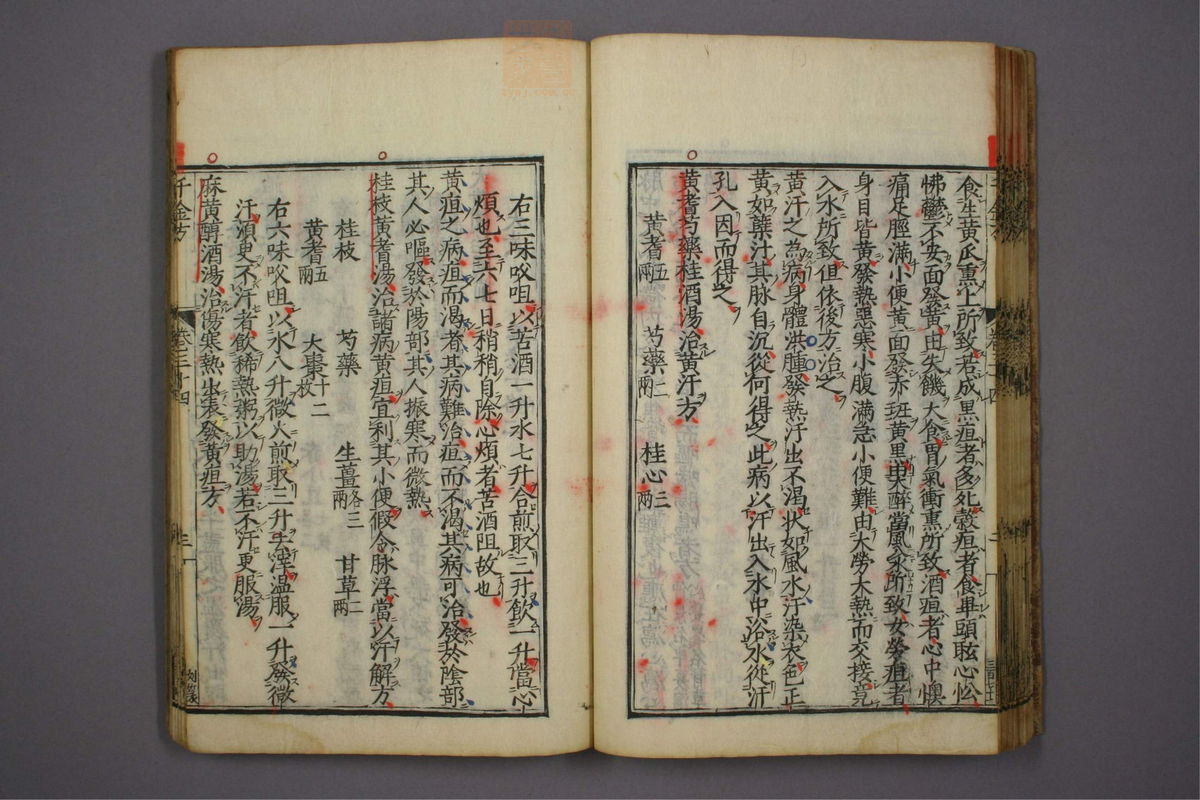 食生黃瓜熏上所致若成黑疸者多死穀疸者食畢頭眩心忪
怫鬱不安而發黃由失饑大食胃氣衝熏所致酒疸者心中懊
痛足脛滿小便黃面發赤斑黃黑由大醉當風入水所致女勞疸者
身目皆黃發熱惡寒小腹滿急小便難由大勞大熱而交接竟
入水所致但依後方治之
黃汗之為病身體洪腫發熱汗出不渴狀如風水汗染衣色正
黃如蘗汁其脉自沉從何得之此病以汗出入水中浴水從汗
孔入因而得之
黃耆芍藥桂酒湯治黃汗方
黃耆五兩 芍藥二兩 桂心三兩
右三味㕮咀以苦酒一升水七升合煎取三升飲一升當心
煩也至六七日稍稍自除心煩者苦酒阻故也
黃疸之病疸而渴者其病難治疸而不渴其病可治發於陰部
其人必嘔發於陽部其人振寒而微熱
桂枝黃耆湯治諸病黃疸宜利其小便假令脉浮當以汗解方
桂枝 芍藥 生薑各三兩 甘草二兩
黃耆五兩 大棗十二枚
右六味㕮咀以水八升微火煎取三升去滓溫服一升發微
汗須臾不汗者飲稀熱粥以助湯若不汗更服湯
麻黃醇酒湯治傷寒熱出表發黃疸方
千金方 卷三十四